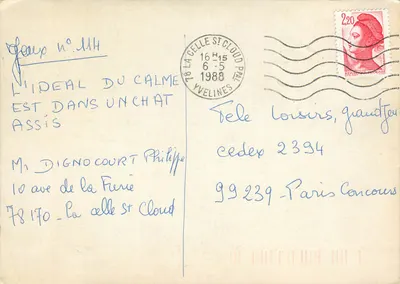 Jeux n° 114
L'IDEAL DU CALME
EST DANS UN CHAT
ASSIS
M. DIGNOCOURT Philippe
10 ave de la
78170 - La celle St Cloud
78 LA CELLE ST CLOUD PPAL
16H15
6-5
1988
YVELINES
2,20
Tele Loisirs, grand Jeu
cedex 2394
99239 - Paris Concours